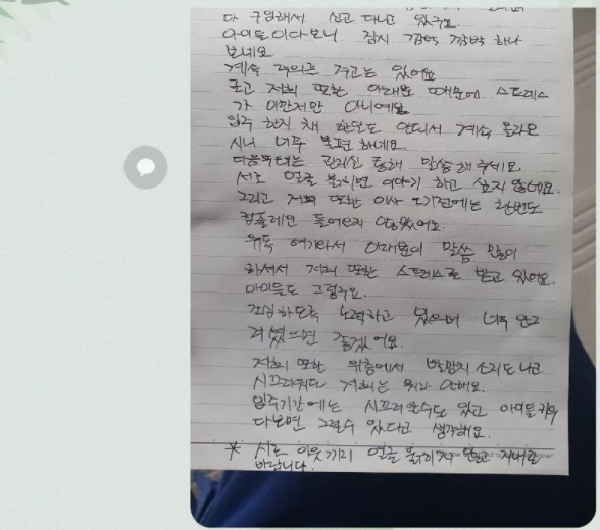 다 구입해서 신고 다니고 있구요
아이들이다보니 잠시 깜박 깜박 하나
보네요
계속 주의를 주고는 있어요
그리고 저희 또한 아래층 때문에 스트레스
가 이만저만 아니예요
입주 한지 채 한달도 안되서 계속 올라오
시니 너무 불편하네요.
다음부터는 관리실 통해 말씀해 주세요.
서로 얼굴 붉히면 이야기 하고 싶지 않네요.
그리고 저희 또한 이사 오기전에는 한번도
컴플레인 들어온적 않았어요.
유독 여기와서 아래분이 말씀 많이
하셔서 저희 또한 스트레스로 받고 있어요.
아이들도 그렇구요.
조심하도록 노력하고 있으니 너무
주셨으면 좋겠어요.
저희 또한 위층에서 발망치 소리도 나고
시끄러워도 저희는 뭐라 안해요.
입주기간에는 시끄러울수도 있고 아이들 키우
다보면 그럴수 있다고 생각해요.
* 서로 이웃끼리 얼굴 붉히지 말고 지내길
바랍니다.